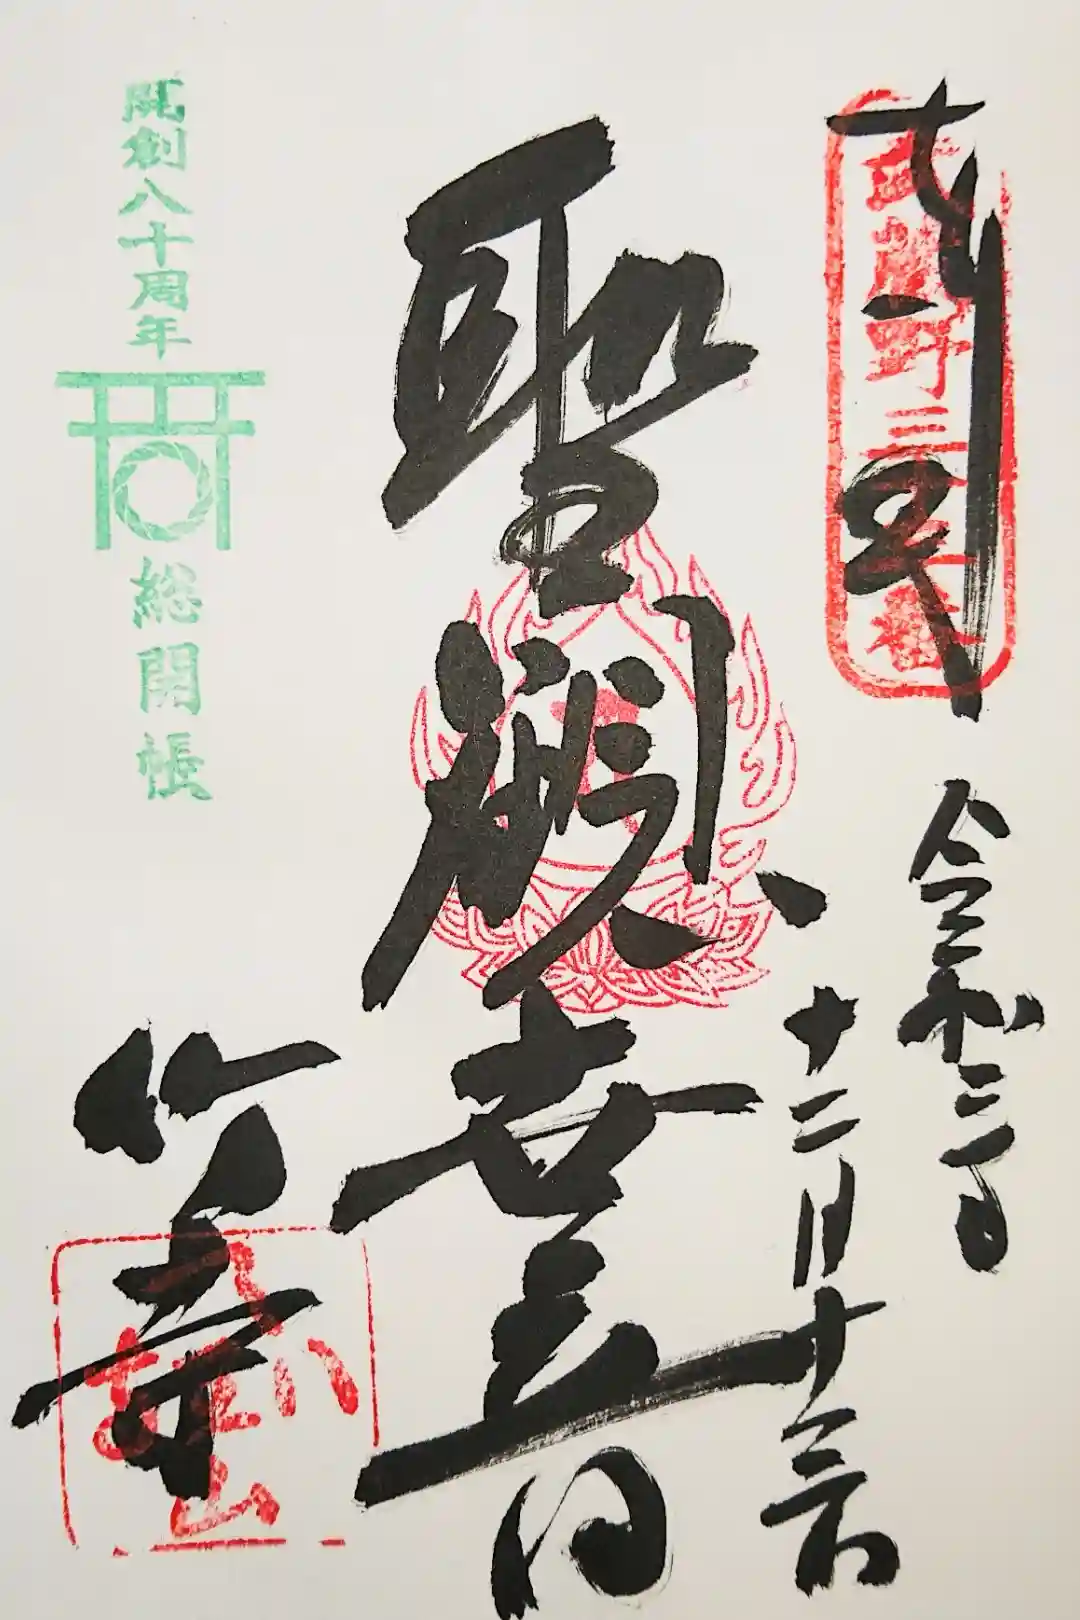 奉拝
武蔵野三十三番札所
令和二年
十二月十三日
聖観世音
竹寺
開創八十周年
総開帳